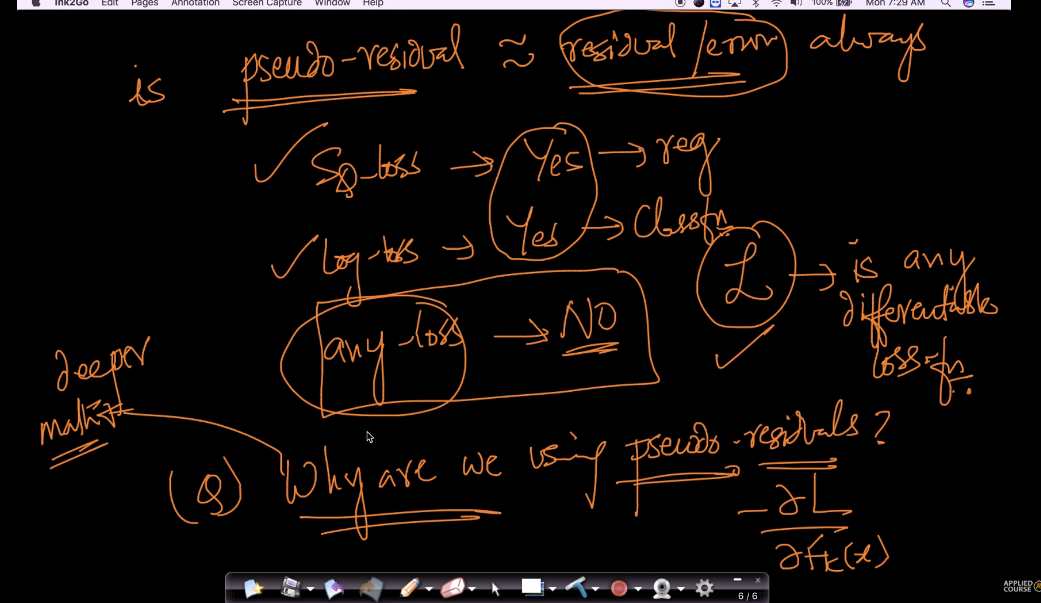 Ink2Go Edit Pages Annotation Screen Capture Window Help 100% Mon 7:29 AM
is pseudo-residual ≈ residual/error always
✓ Sq-loss → Yes → reg
✓ log-loss → Yes → Classfn.
any-loss → NO
L → is any
differentiable
loss-fn.
deeper
maths
(Q) Why are we using pseudo-residuals?
-∂L
∂Fk(x)
6 / 6
APPLIED
COURSE